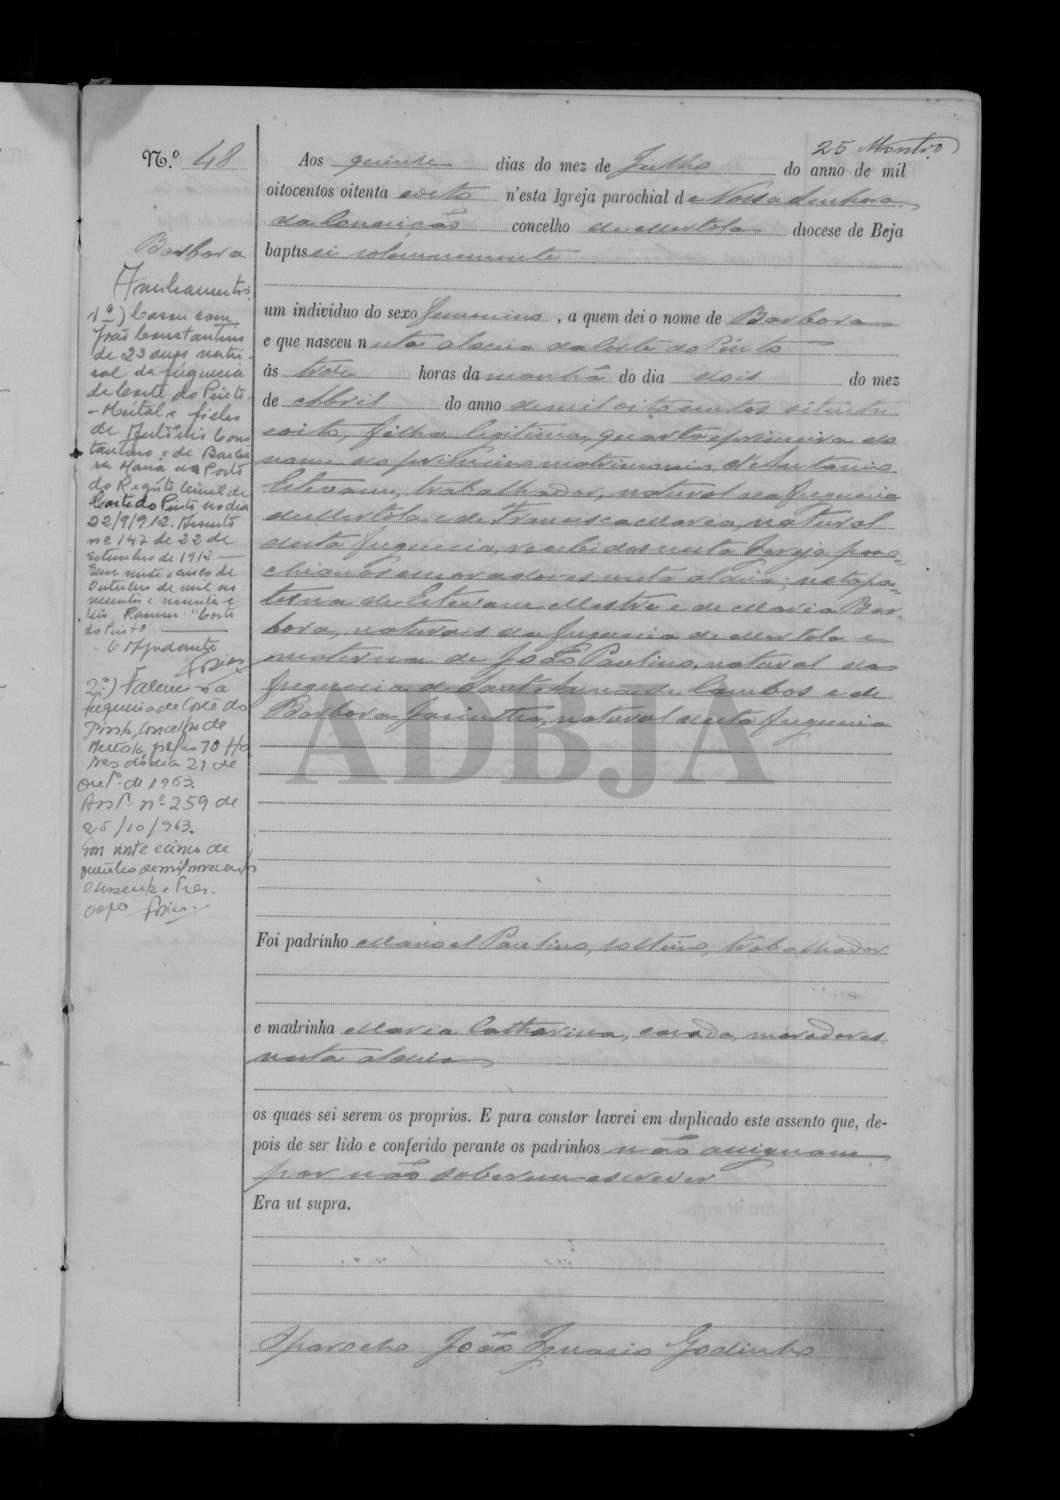 25 Montr.o
N.º 48
Aos quinse dias do mez de Julho do anno de mil
oitocentos oitenta eoito n'esta Igreja parochial de Nossa Senhora
da Conceição concelho de Mertola diocese de Beja
baptisei solemnemente
um individuo do sexo femenino, a quem dei o nome de Barbora
e que nasceu nesta aldeia da Corte do Pinto
às horas da manhã do dia dois do mez
de Abril do anno de mil oito centos oitenta
eoito, filha legitima, quarta eprimeira do
nome do primeiro matrimonio d'Antonio
Estevam, trabalhador, natural da freguesia
de Mertola e de Francisca Maria, natural
desta freguesia, recebidos nesta Igreja paro=
chianos e moradores nesta aldeia; neta pa=
terna de Estevam Mestre e de Maria Bar=
bora, naturais da freguesia de Mertola e
materna de João Paulino, natural da
freguesia de Sant'Anna de Cambas e de
Barbora Jacintha, natural desta freguesia
Foi padrinho Manoel Paulino, solteiro, trabalhador
e madrinha Maria Catharina, casada, moradores
nesta aldeia
os quaes sei serem os proprios. E para constar lavrei em duplicado este assento que, de-
pois de ser lido e conferido perante os padrinhos não assignam
por não saberem escrever
Era ut supra.
O parocho João Ignacio Godinho
Barbora
Averbamentos
1º) Casou com
João Constantino
de 23 anos natu-
ral da freguesia
de Corte do Pinto
- Mértola e filho
de António Cons
tantino e de Barbo
ra Maria no Posto
do Registo Civil de
Corte do Pinto no dia
22/9/912. Assento
nº 147 de 22 de
Setembro de 1912 —
Em vinte e cinco de
Outubro de mil no
vecentos e sessenta e
três. Ramm "Corte
do Pinto"
O Ajudante
2º) Faleceu na
freguesia de Corte do
Pinto, Concelho de
Mertola, pelas 10 Ho
ras do dia 21 de
Out.º de 1963.
Ass.to nº 259 de
25/10/963.
Em vinte e cinco de
outubro de mil novecentos
e sessenta e tres.
ADBJA